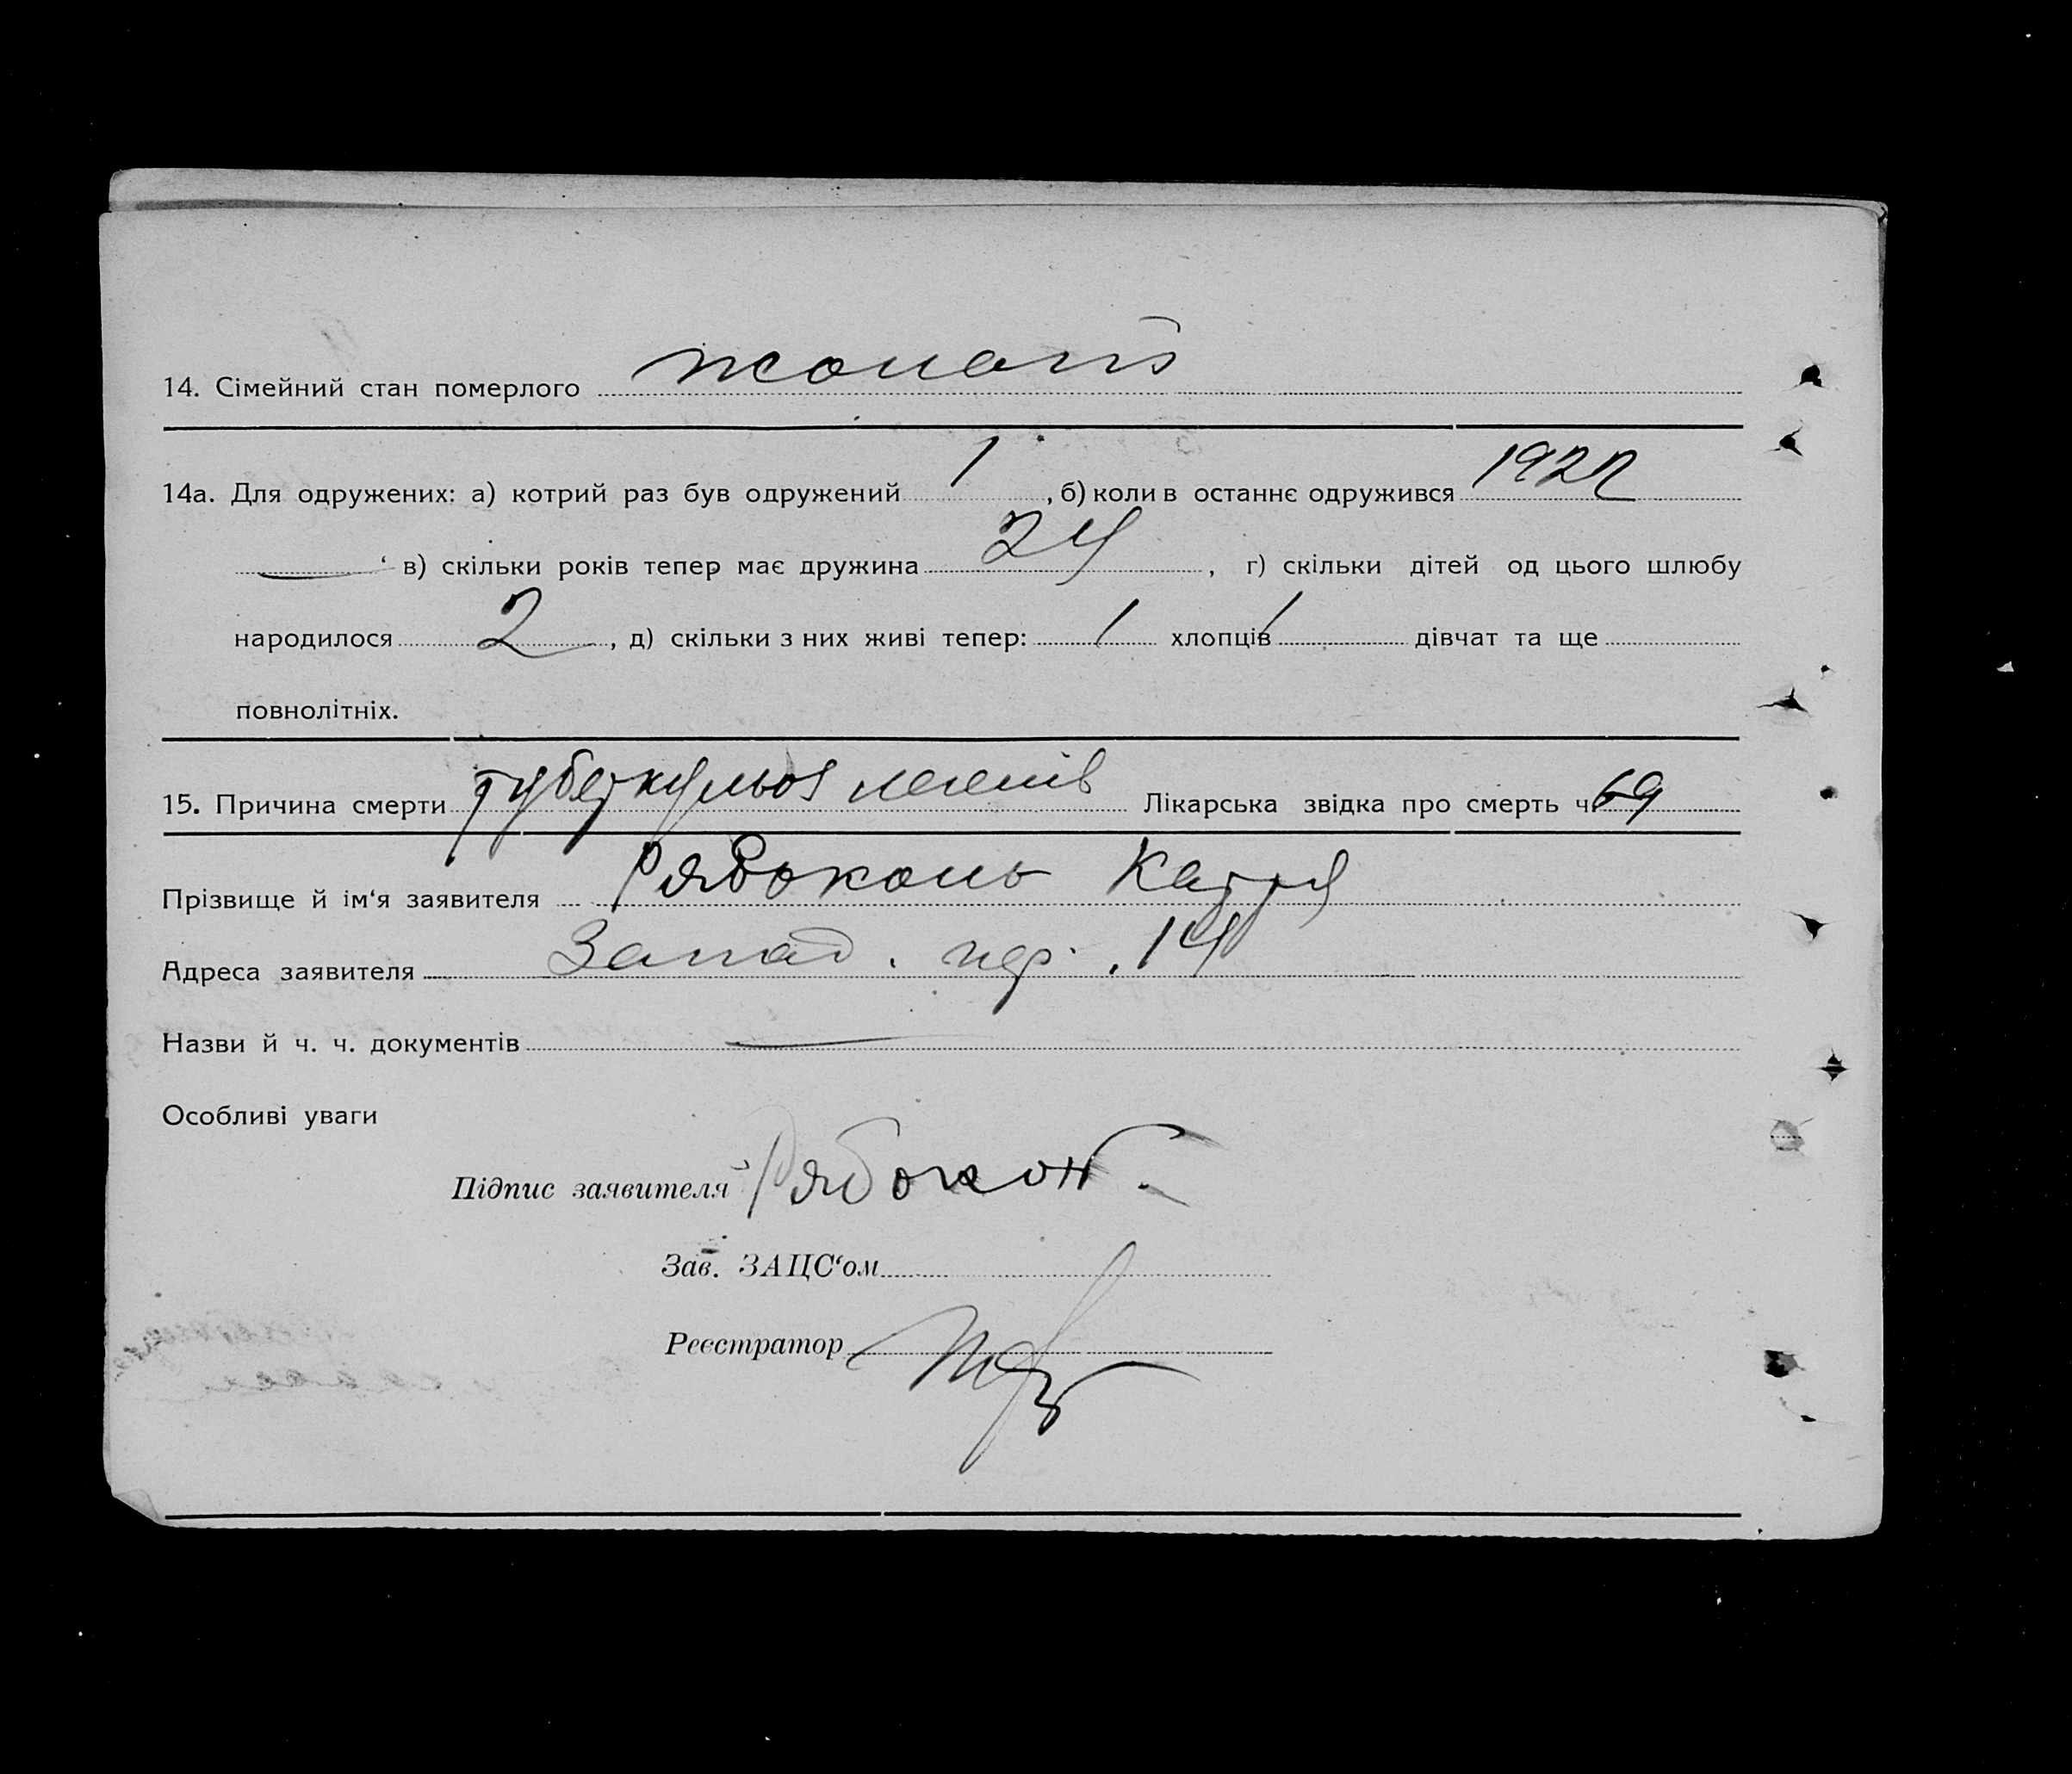 14. Сімейний стан померлого жонатй
14а. Для одружених: а) котрий раз був одружений 1 , б) коли в останнє одружився 1922
‘ в) скільки років тепер має дружина 24 , г) скільки дітей од цього шлюбу
народилося 2 , д) скільки з них живі тепер: 1 хлопців 1 дівчат та ще
повнолітніх.
15. Причина смерти туберкульоз легенів Лікарська звідка про смерть ч. 69
Прізвище й ім‘я заявителя Рябоконь Катря
Адреса заявителя Запад. пер. 14
Назви й ч. ч. документів —
Особливі уваги
Підпис заявителя Рябокон
Зав. ЗАЦС‘ом
Реєстратор